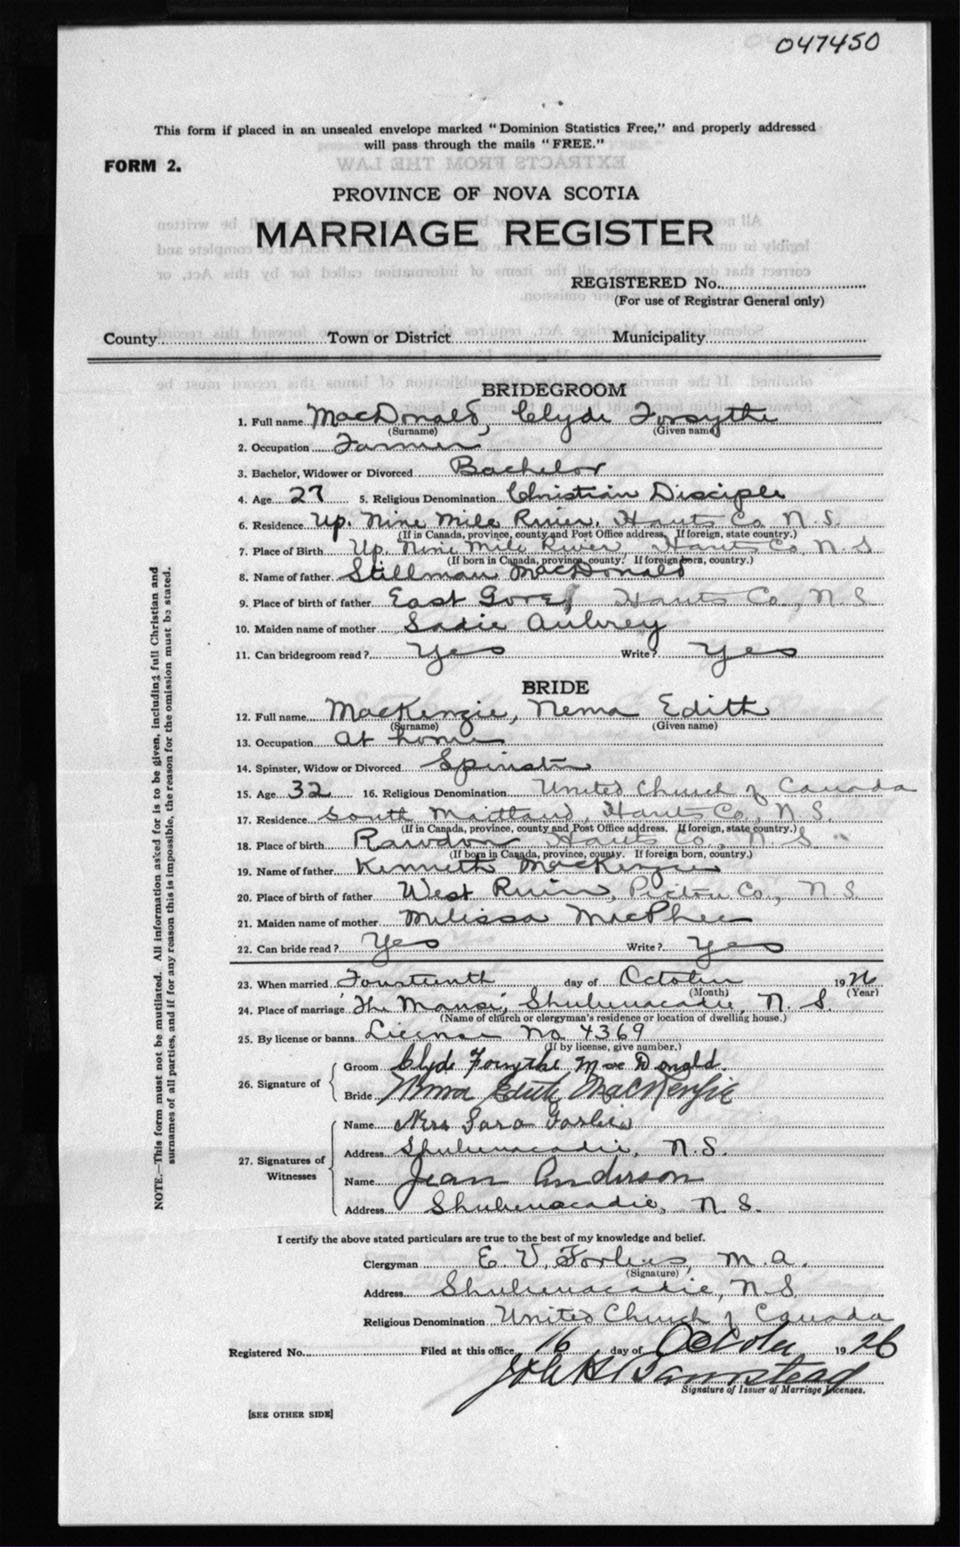 047450
This form if placed in an unsealed envelope marked "Dominion Statistics Free," and properly addressed
will pass through the mails "FREE."
FORM 2.
PROVINCE OF NOVA SCOTIA
MARRIAGE REGISTER
REGISTERED No.
(For use of Registrar General only)
County Town or District Municipality
BRIDEGROOM
1. Full name MacDonald, Clyde Forsythe
(Surname) (Given name)
2. Occupation Farmer
3. Bachelor, Widower or Divorced Bachelor
4. Age 27 5. Religious Denomination Christian Disciple
6. Residence Up. Nine Mile River, Hants Co. N.S.
(If in Canada, province, county and Post Office address. If foreign, state country.)
7. Place of Birth Up. Nine Mile River, Hants Co., N.S
(If born in Canada, province, county. If foreign born, country.)
8. Name of father Stillman MacDonald
9. Place of birth of father East Gore, Hants Co., N.S.
10. Maiden name of mother Sadie Aubrey
11. Can bridegroom read? Yes Write? Yes
BRIDE
12. Full name MacKenzie, Nema Edith
(Surname) (Given name)
13. Occupation At home
14. Spinster, Widow or Divorced Spinster
15. Age 32 16. Religious Denomination United Church of Canada
17. Residence South Maitland, Hants Co., N.S.
(If in Canada, province, county and Post Office address. If foreign, state country.)
18. Place of birth Rawdon Hants Co., N.S.
(If born in Canada, province, county. If foreign born, country.)
19. Name of father Kenneth MacKenzie
20. Place of birth of father West River, Pictou Co., N.S.
21. Maiden name of mother Melissa MacPhee
22. Can bride read? Yes Write? Yes
23. When married Fourteenth day of October 1926
(Month) (Year)
24. Place of marriage 'The Manse', Shubenacadie, N.S.
(Name of church or clergyman's residence or location of dwelling house.)
25. By license or banns License No 4369
(If by license, give number.)
26. Signature of
Groom Clyde Forsythe MacDonald.
Bride Nema Edith MacKenzie
27. Signatures of Witnesses
Name Mrs Sara Forbes
Address Shubenacadie, N.S.
Name Jean Anderson
Address Shubenacadie, N.S.
I certify the above stated particulars are true to the best of my knowledge and belief.
Clergyman E. V. Forbes, M.A.
(Signature)
Address Shubenacadie, N.S.
Religious Denomination United Church of Canada
Registered No. Filed at this office 16 day of October 1926
Signature of Issuer of Marriage Licenses.
[SEE OTHER SIDE]
NOTE.—This form must not be mutilated. All information asked for is to be given, including full Christian and
surnames of all parties, and if for any reason this is impossible, the reason for the omission must be stated.